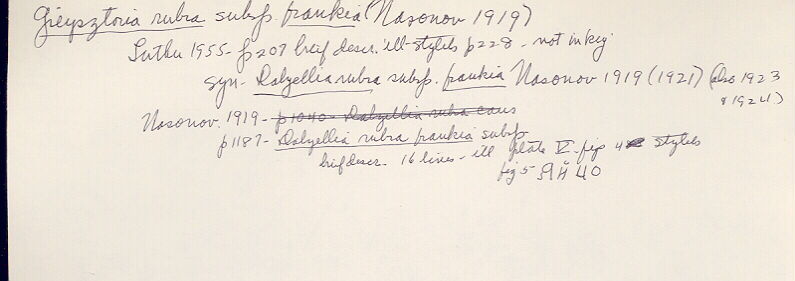 Gieysztoria rubra subsp. frankia (Nasonov 1919)
Luther 1955 - p207 brief descr. ill - stylets p228 - not in key
syn - Dalyellia rubra subsp. frankia Nasonov 1919 (1921) (also 1923
& 1924)
Nasonov. 1919 - p1040 - Dalyellia rubra
p1187 - Dalyellia rubra frankia subsp
brief descr. 16 lines - ill plate V - figs 4 stylets
fig 5